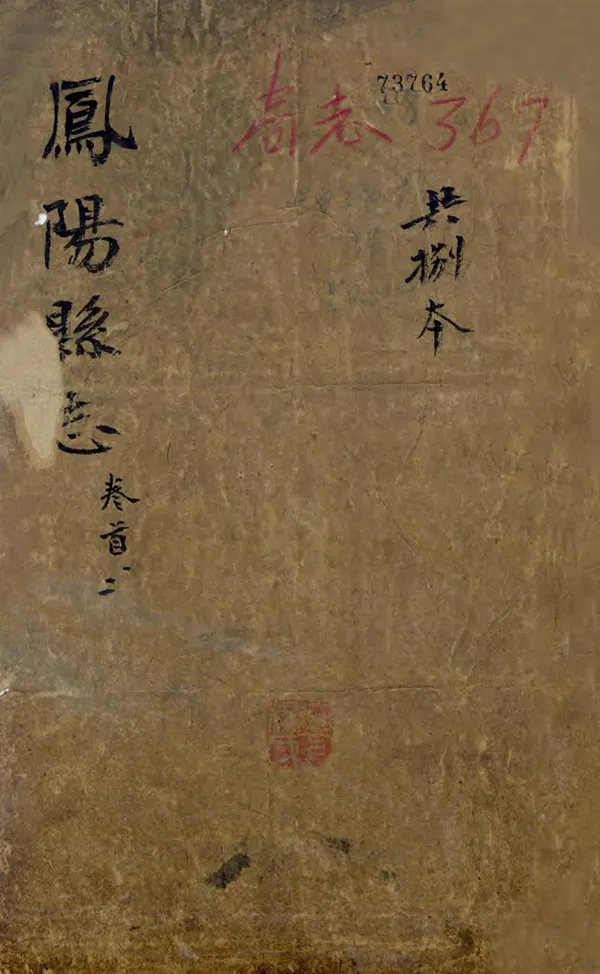 73764
志 367
共捌本
鳳陽縣志
卷首二